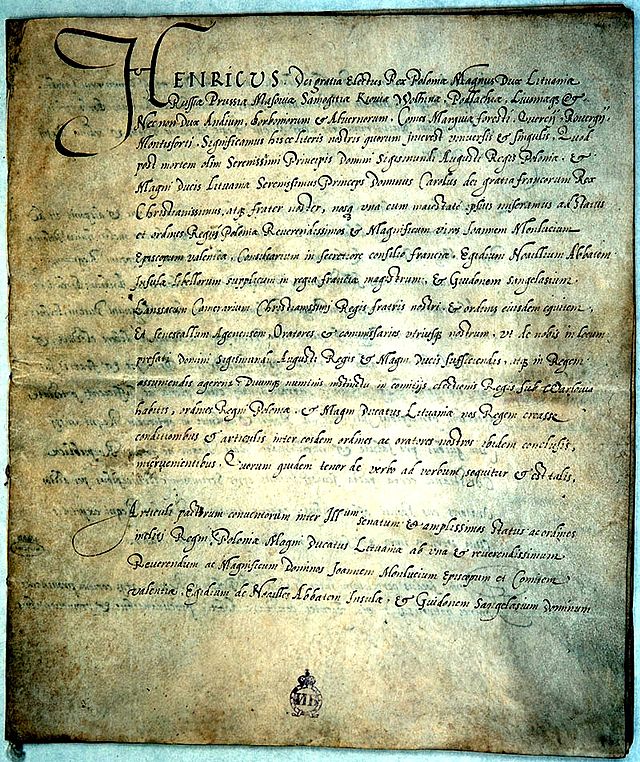 HENRICUS Dei gratia Electus Rex Poloniæ Magnus Dux Lituaniæ
Russiæ Prussiæ Masoviæ Samogitiæ Kioviæ Wolhiniæ, Podlachiæ, Livoniæq; &
Nec non Dux Andium, Borboniorum & Alvernorum, Comes Marchiæ foresti, Quercij, Rovergij
Montisforti, Significamus hisce literis nostris quorum interest universis & singulis, Quod
post mortem olim Serenissimi Principis Domini Sigismundi Augusti Regis Poloniæ, &
Magni Ducis Lituaniæ Serenissimus Princeps Dominus Carolus dei gratia francorum Rex
Christianissimus, atq; frater noster, nosq; una cum maiestate ipsius miseramus ad Status
et ordines Regni Poloniæ Reverendissimos & Magnificum viros Ioannem Monlucium
Episcopum valentiæ, Consiliarium in secretiore consilio franciæ, Egidium Noallium Abbatem
Insulæ libellorum supplicum in regia franciæ magistrum, & Guidonem Sangelasium
Lansacum Camerarium Christianissimi Regis fratris nostri, & ordinis eiusdem equitem,
Et Senescallum Agenensem, Oratores & commissarios utriusq; nostrum, ut de nobis in locum
præfati Domini Sigismundi Augusti Regis & Magni Ducis sufficiendis, atq; in Regem
assumendis agerent: Divinoq; numinis instinctu in comitijs electionis Regis sub Warsovia
habitis, ordines Regni Poloniæ, & Magni Ducatus Lituaniæ nos Regem creasse
conditionibus & articulis inter eosdem ordines ac oratores nostros ibidem conclusis,
intervenientibus, Quorum quidem tenor de verbo ad verbum sequitur & est talis,
Articuli pactorum conventorum inter Ill^um Senatum & amplissimos Status ac ordines
incliti Regni Poloniæ Magni Ducatus Lituaniæ ab una & reverendissimum
Reverendum ac Magnificum Dominos Ioannem Monlucium Episcopum et Comitem
valentiæ, Egidium de Noailles Abbatem Insulæ, & Guidonem Sangelasium Dominum